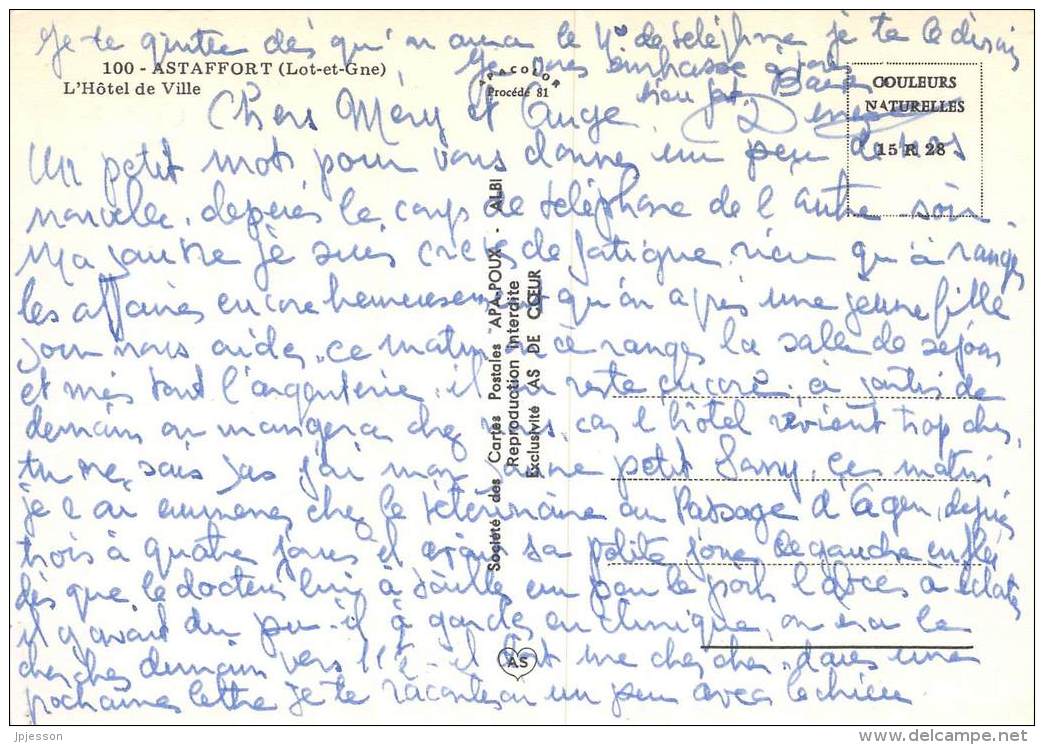 je te quitte dès qu'on aura le N° de téléphone je te le dirai
100 - ASTAFFORT (Lot-et-Gne)
L'Hôtel de Ville
APACOLOR
Procédé 81
Je vous embrasse
COULEURS
NATURELLES
15 R 28
Chers Méry et Ange
Un petit mot pour vous donner un peu de nos
nouvelle, depuis le coup de téléphone de l'autre soir
Ma je suis de fatigue, rien qu'à ranger
les affaires encore heureusement qu'on a pris une jeune fille
pour nous aider, ce matin ranger la salle de séjour
et mes tout l'argenterie, il en reste encore, à partir de
demain on mangera chez nous, car l'hôtel revient trop cher,
tu ne sais pas j'ai mon petit ces matin
je l'ai emmener chez le Vétérinaire au Passage d'Agen, depuis
trois à quatre jours il avait sa petite joue gauche enflé
dès que le docteur lui à un peu le poil l'abcès à éclaté
il y avait du pu - il à garder en clinique, on ira le
chercher demain vers 11 h - il me cherche, dans une
prochaine lettre je te raconterai un peu avec le chien
Société des Cartes Postales APA-POUX - ALBI
Reproduction Interdite
Exclusivité AS DE CŒUR
AS
jpjesson
www.delcampe.net